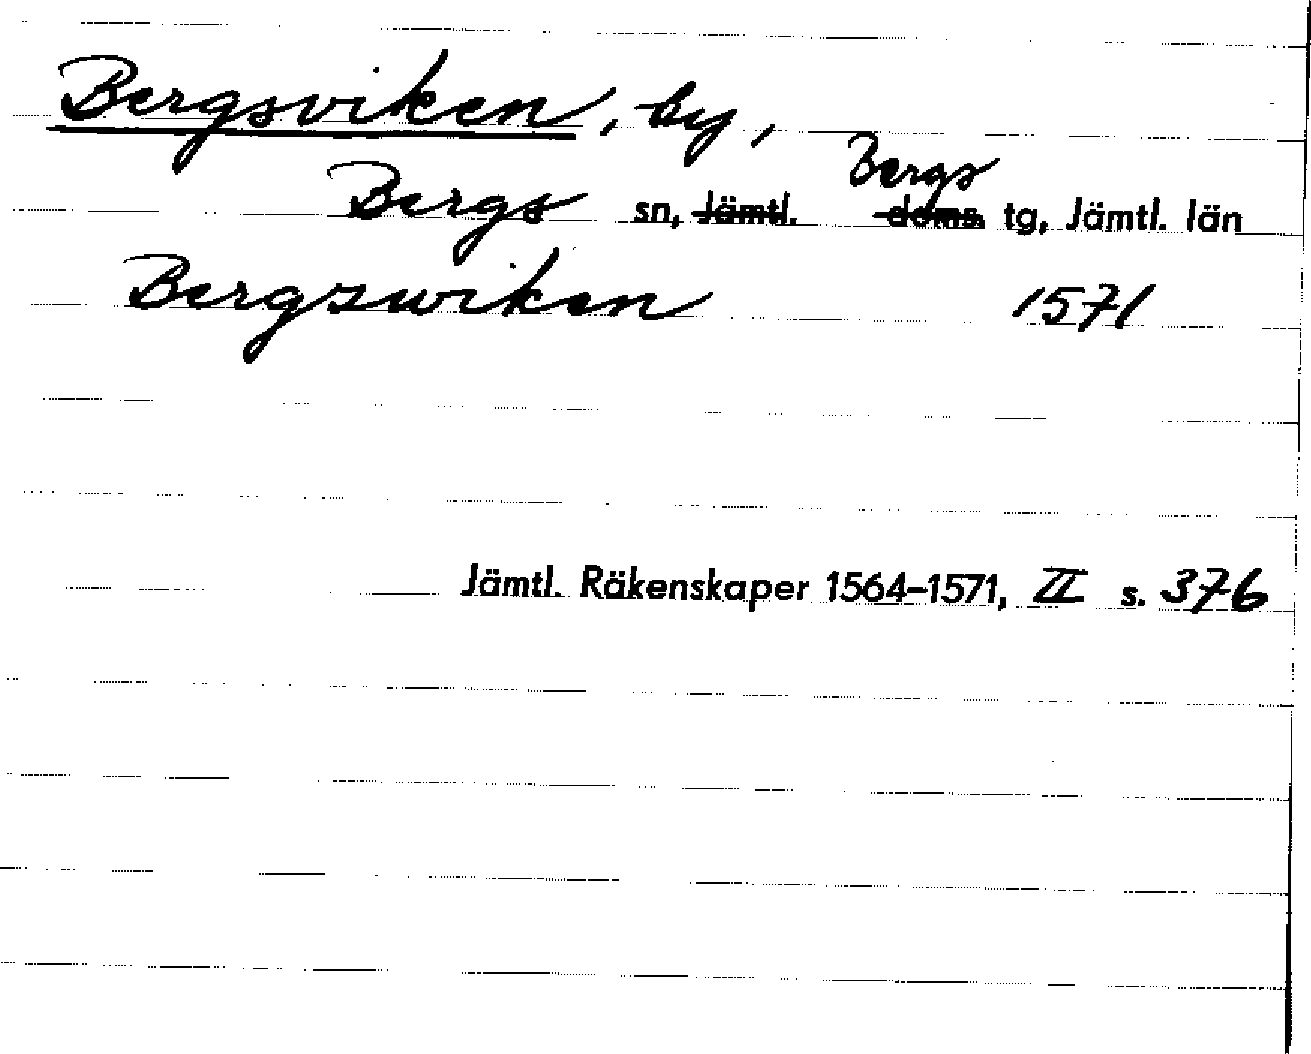 Bergsviken, by,
Bergs sn, Jämtl. doms. Bergs tg, Jämtl. län
Bergzwiken 1571
Jämtl. Räkenskaper 1564–1571, II s. 376